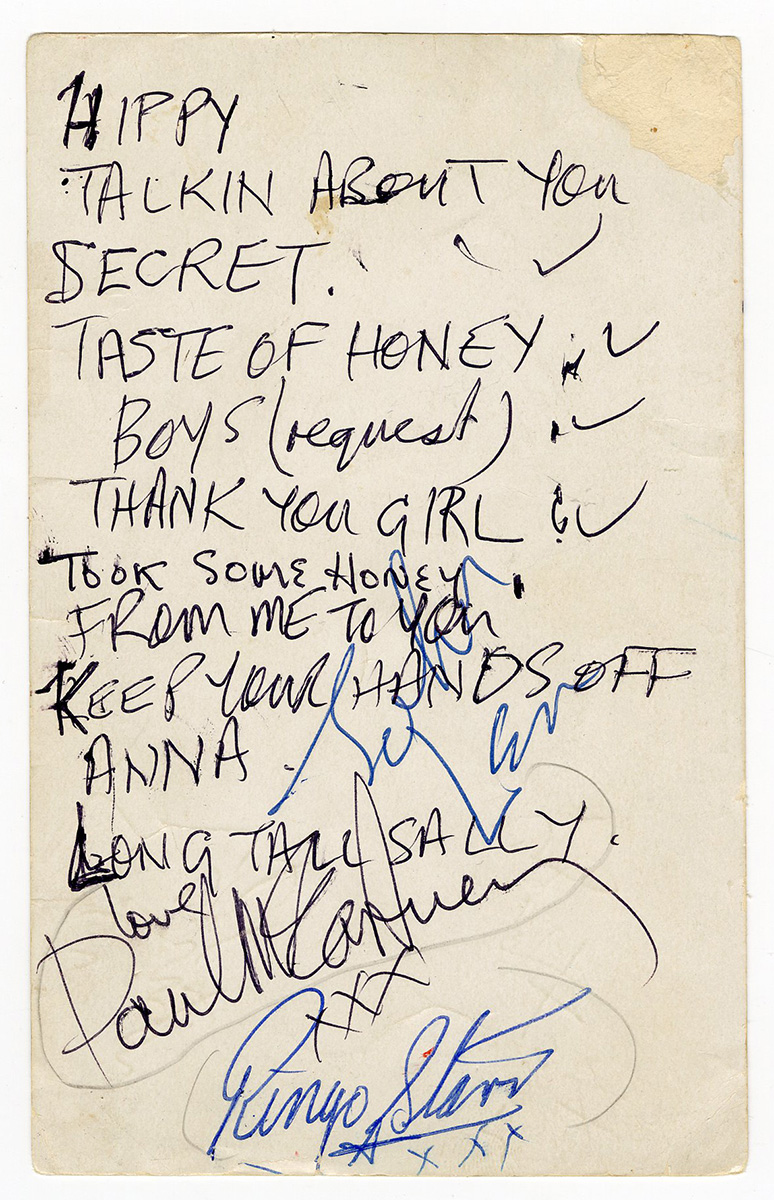 HIPPY
TALKIN ABOUT YOU
SECRET.
TASTE OF HONEY
BOYS (request)
THANK YOU GIRL
TOOK SOME HONEY
FROM ME TO YOU
KEEP YOUR HANDS OFF
ANNA.
LONG TALL SALLY.
love
Paul McCartney
xxx
Ringo Starr
xxx